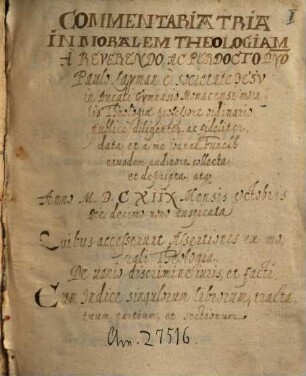 COMMENTARIA TRIA
IN MORALEM THEOLOGIAM
A REVERENDO, AC PERDOCTO DNO
Paulo Layman è societate JESU
in Ducali Gymnasio Monacensi mora
lis Theologiæ professore ordinario
publicè, diligenter, ac fideliter
data et a me Joanne
eiusdem auditore collecta
et descripta, atq
Anno M. D. C XIIX Mensis Octobris
Die decimo nono auspicata
Quibus accesserunt Assertiones ex mo
rali Theologia.
De vario discrimine iuris, et facti,
Cum Indice singulorum librorum, tracta
tuum partium, et sectionum.
Clm. 27516